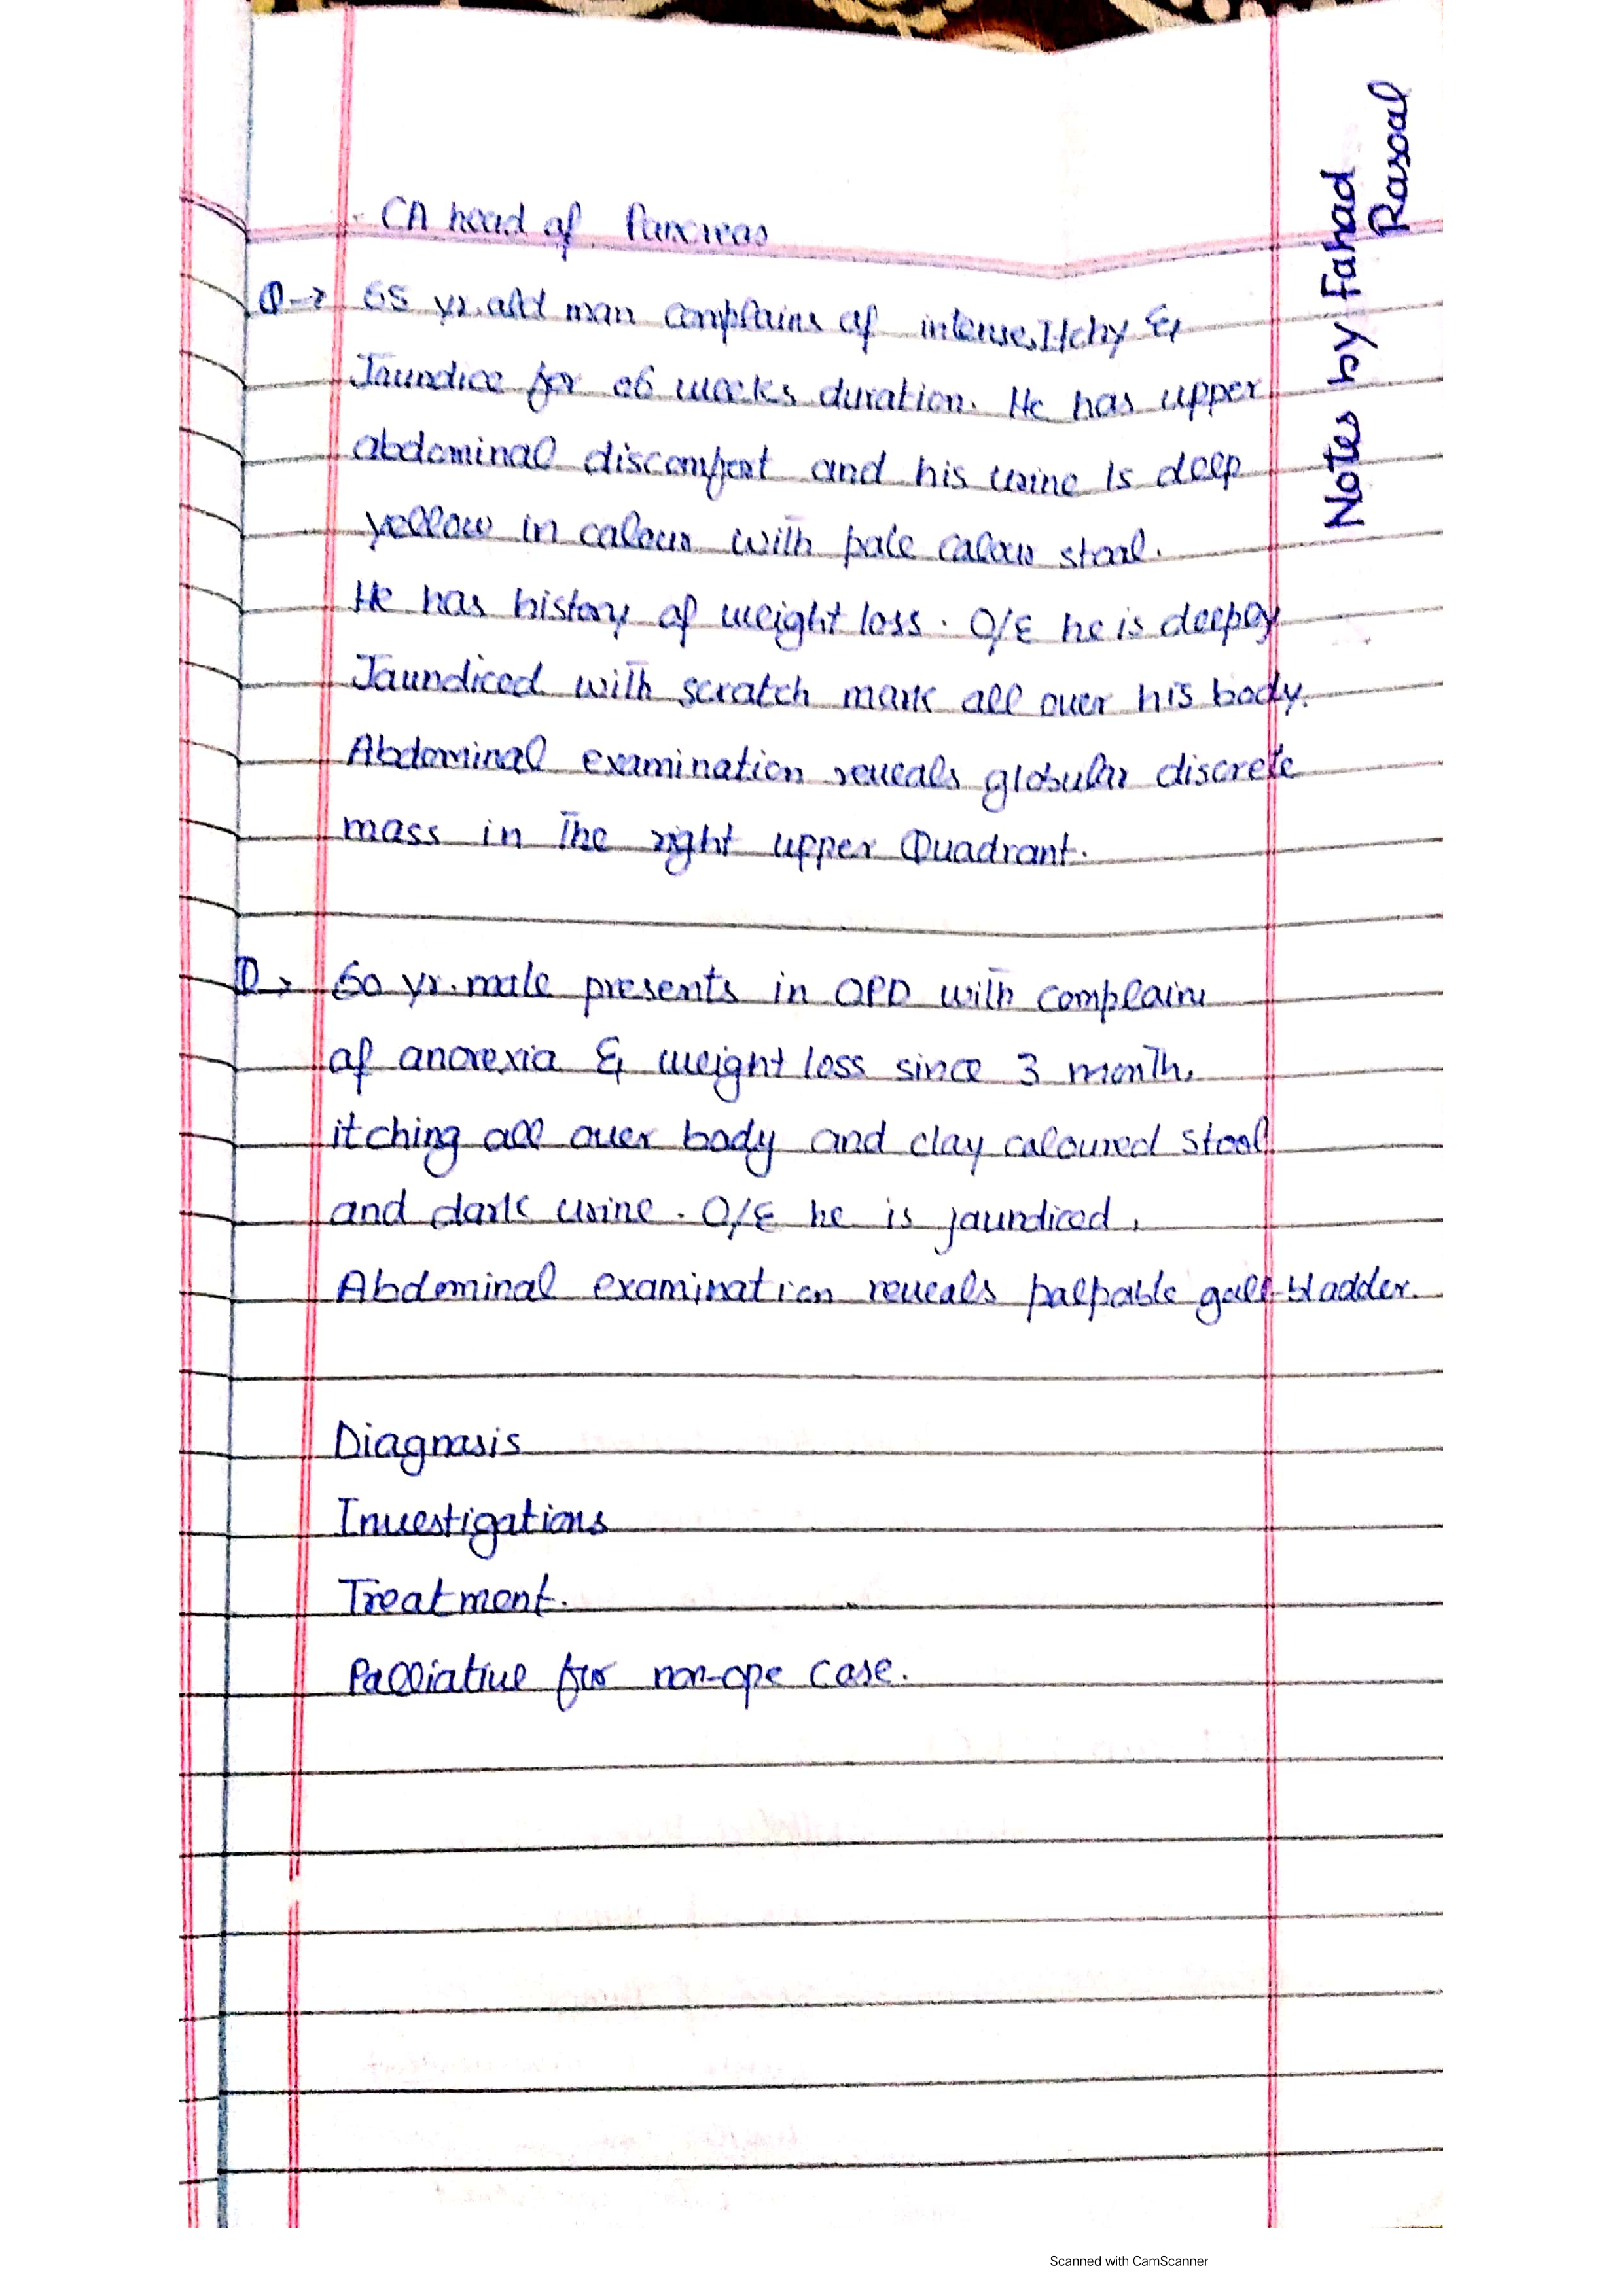 CA head of Pancreas
Q→ 65 yr. old man complains of intense Itchy &
Jaundice for 06 weeks duration. He has upper
abdominal discomfort and his urine is deep
yellow in colour with pale colour stool.
He has history of weight loss. O/E he is deeply
Jaundiced with scratch mark all over his body.
Abdominal examination reveals globular discrete
mass in the right upper Quadrant.
Q→ 60 yr. male presents in OPD with complain
of anorexia & weight loss since 3 month,
itching all over body and clay coloured stool
and dark urine. O/E he is jaundiced,
Abdominal examination reveals palpable gall-bladder.
Diagnosis
Investigations
Treatment.
Palliative for non-ope case.
Notes by Fahad
Rasool
Scanned with CamScanner